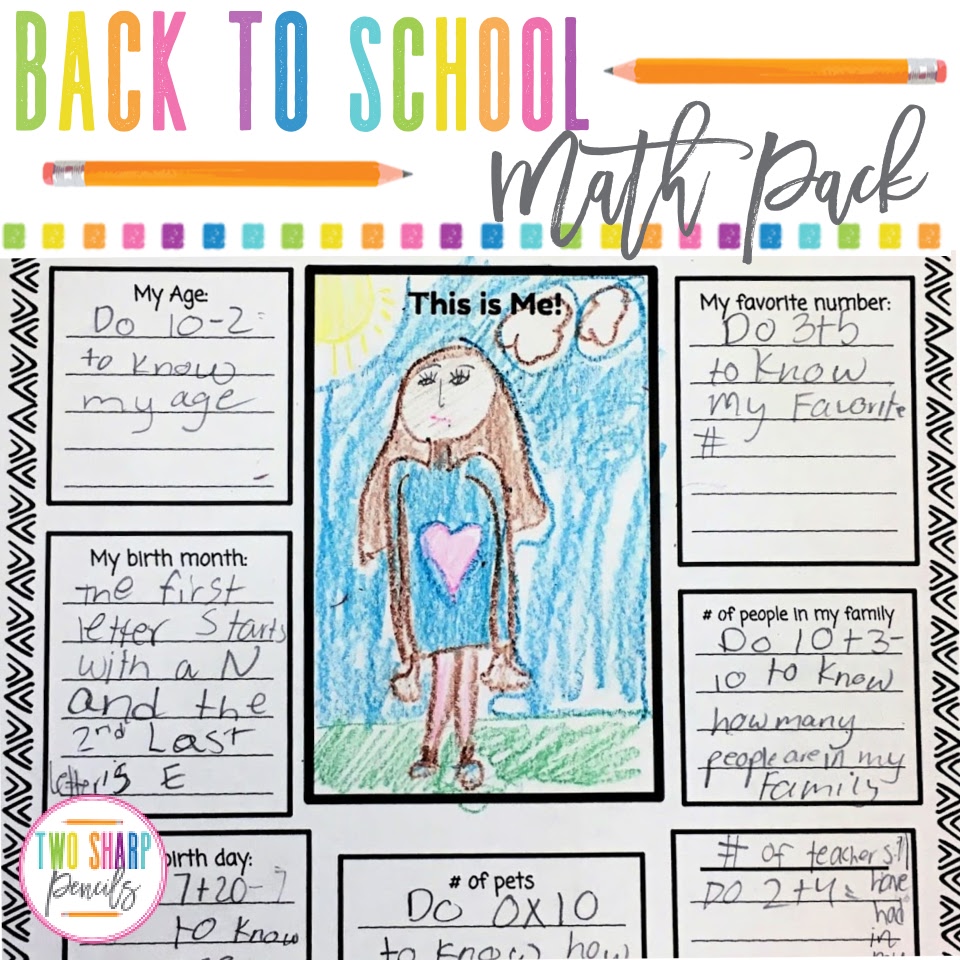 BACK TO SCHOOL
Math Pack
My Age:
Do 10-2=
to know
my age
This is Me!
My favorite number:
Do 3+5
to know
my Favorite
#
My birth month:
the first
letter Starts
with a N
and the
2nd Last
letter is E
# of people in my family
Do 10+3-
10 to know
how many
people are in my
Family
TWO SHARP
Pencils
birth day:
7+20-
to know
# of pets
Do 0X10
to know how
# of teachers
DO 2+4=
have
had
in
my